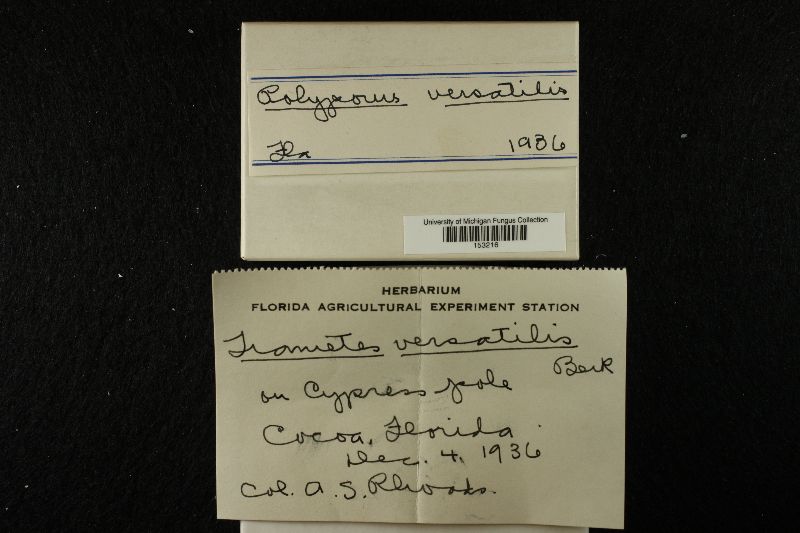 Polyporus versatilis
Fla 1936
University of Michigan Fungus Collection
153216
HERBARIUM
FLORIDA AGRICULTURAL EXPERIMENT STATION
Trametes versatilis
Berk
on Cypress pole
Cocoa, Florida.
Dec. 4, 1936
Col. A. S. Rhoads.